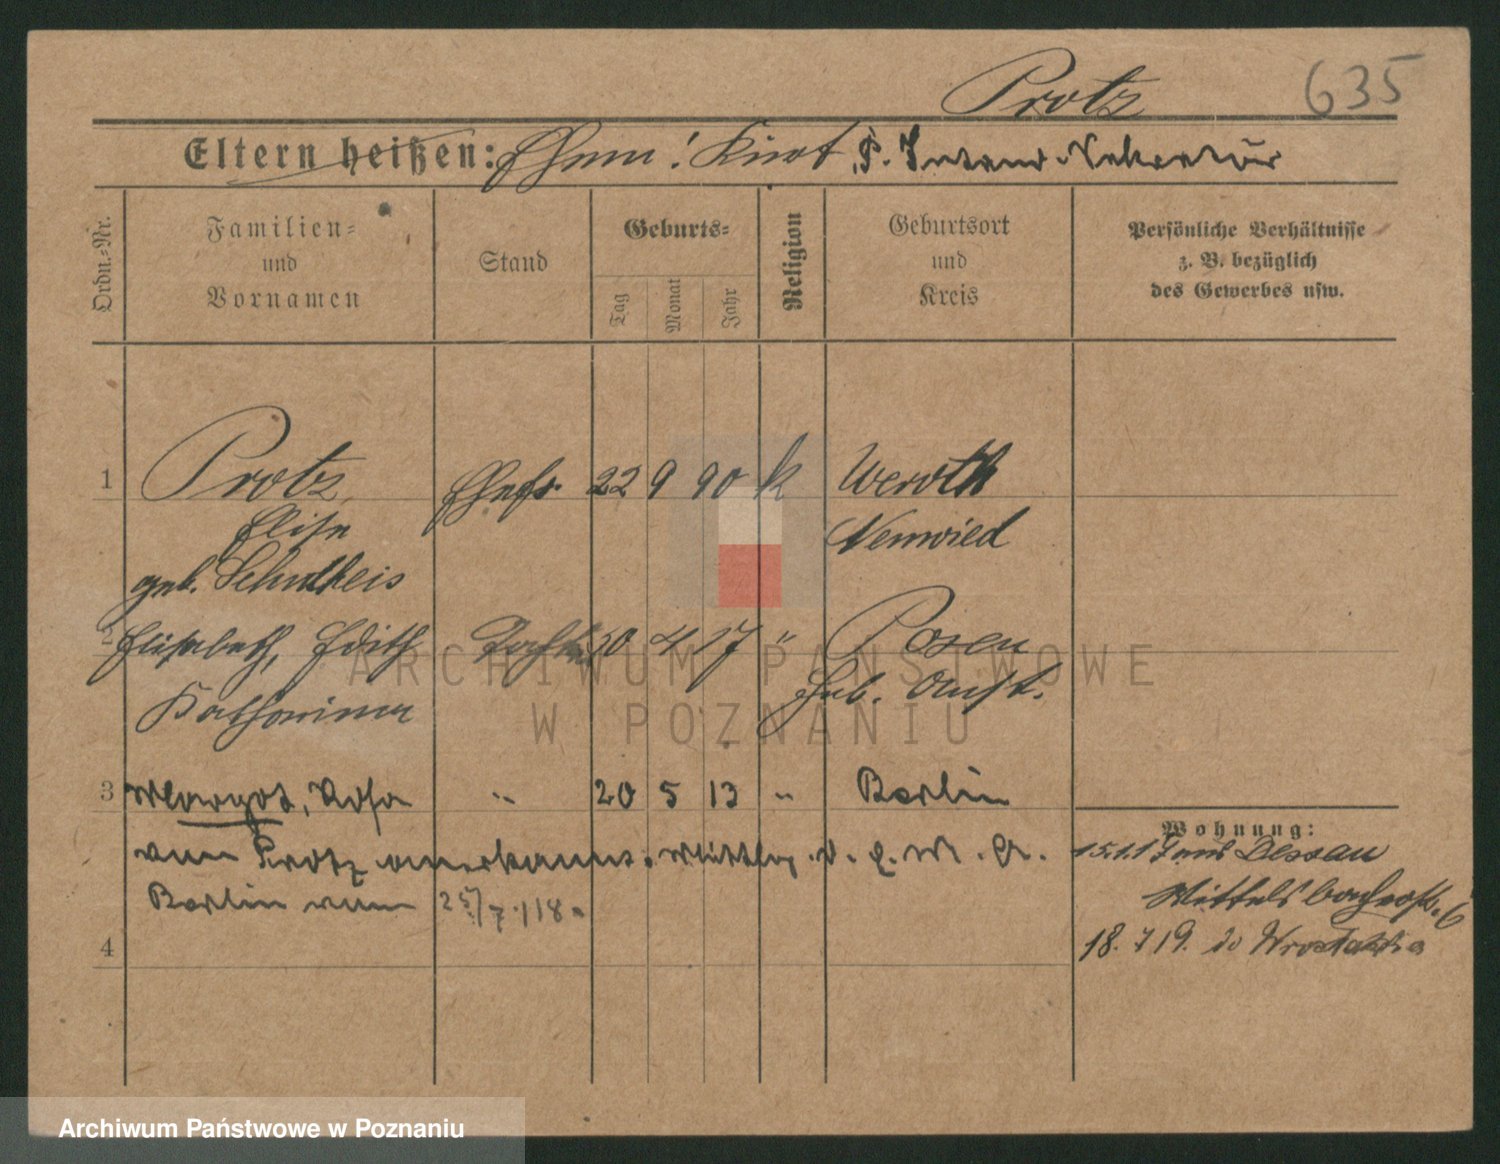 Protz 635
Eltern heißen: Ehem: Kurt, P. Intend. Sekretär
Ordn.-Nr.
Familien-
und
Vornamen
Stand
Geburts-
Tag
Monat
Jahr
Religion
Geburtsort
und
Kreis
Persönliche Verhältnisse
z. B. bezüglich
des Gewerbes usw.
1 Protz Ehefr. 22 9 90 k Weroth
Elise Neuwied
geb. Schultheis
2 Elisabeth, Edith 4 17 " Posen
Katharina Geb. Anst.
3 Margot, Rosa " 20 5 13 " Berlin
Wohnung:
von Protz anerkannt. d. E. M. A.
Berlin vom 25/7.18.
15.1.19 Dessau
Wittelsbacherstr. 6
4
18. 7 19.
ARCHIWUM PAŃSTWOWE
W POZNANIU
Archiwum Państwowe w Poznaniu